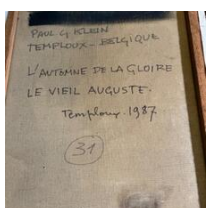 PAUL G KLEIN
TEMPLOUX - BELGIQUE
L'AUTOMNE DE LA GLOIRE
LE VIEIL AUGUSTE.
Temploux. 1987.
31